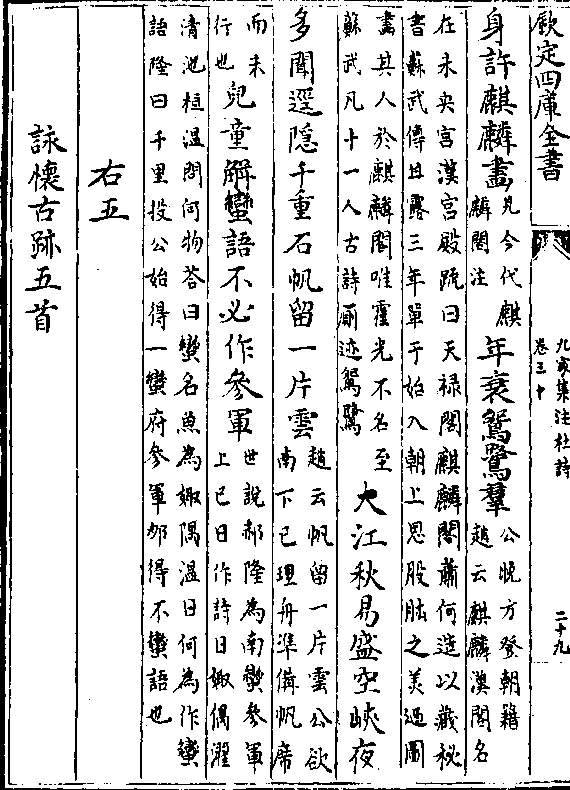 欽定四庫全書
九家集注杜詩
卷三十
二十九
身許麒麟畫見今代麒
麟閣注
年衰鴛鷺羣公晚方登朝籍
趙云麒麟漢閣名
在未央宮漢宮殿疏曰天禄閣麒麟閣蕭何造以藏秘
書蘇武傳甘露三年單于始入朝上思股肱之美廼圖
畫其人於麒麟閣唯霍光不名至
蘇武凡十一人古詩廁迹鴛鷺
大江秋易盛空峽夜
多聞逕隱千重石帆留一片雲趙云帆留一片雲公欲
南下已理舟準備帆席
而未
行也
兒童解蠻語不必作參軍世說郝隆為南蠻參軍
上巳日作詩曰娵偶濯
清池桓温問何物答曰蠻名魚為娵隅温曰何為作蠻
語隆曰千里投公始得一蠻府參軍那得不蠻語也
右五
詠懷古跡五首